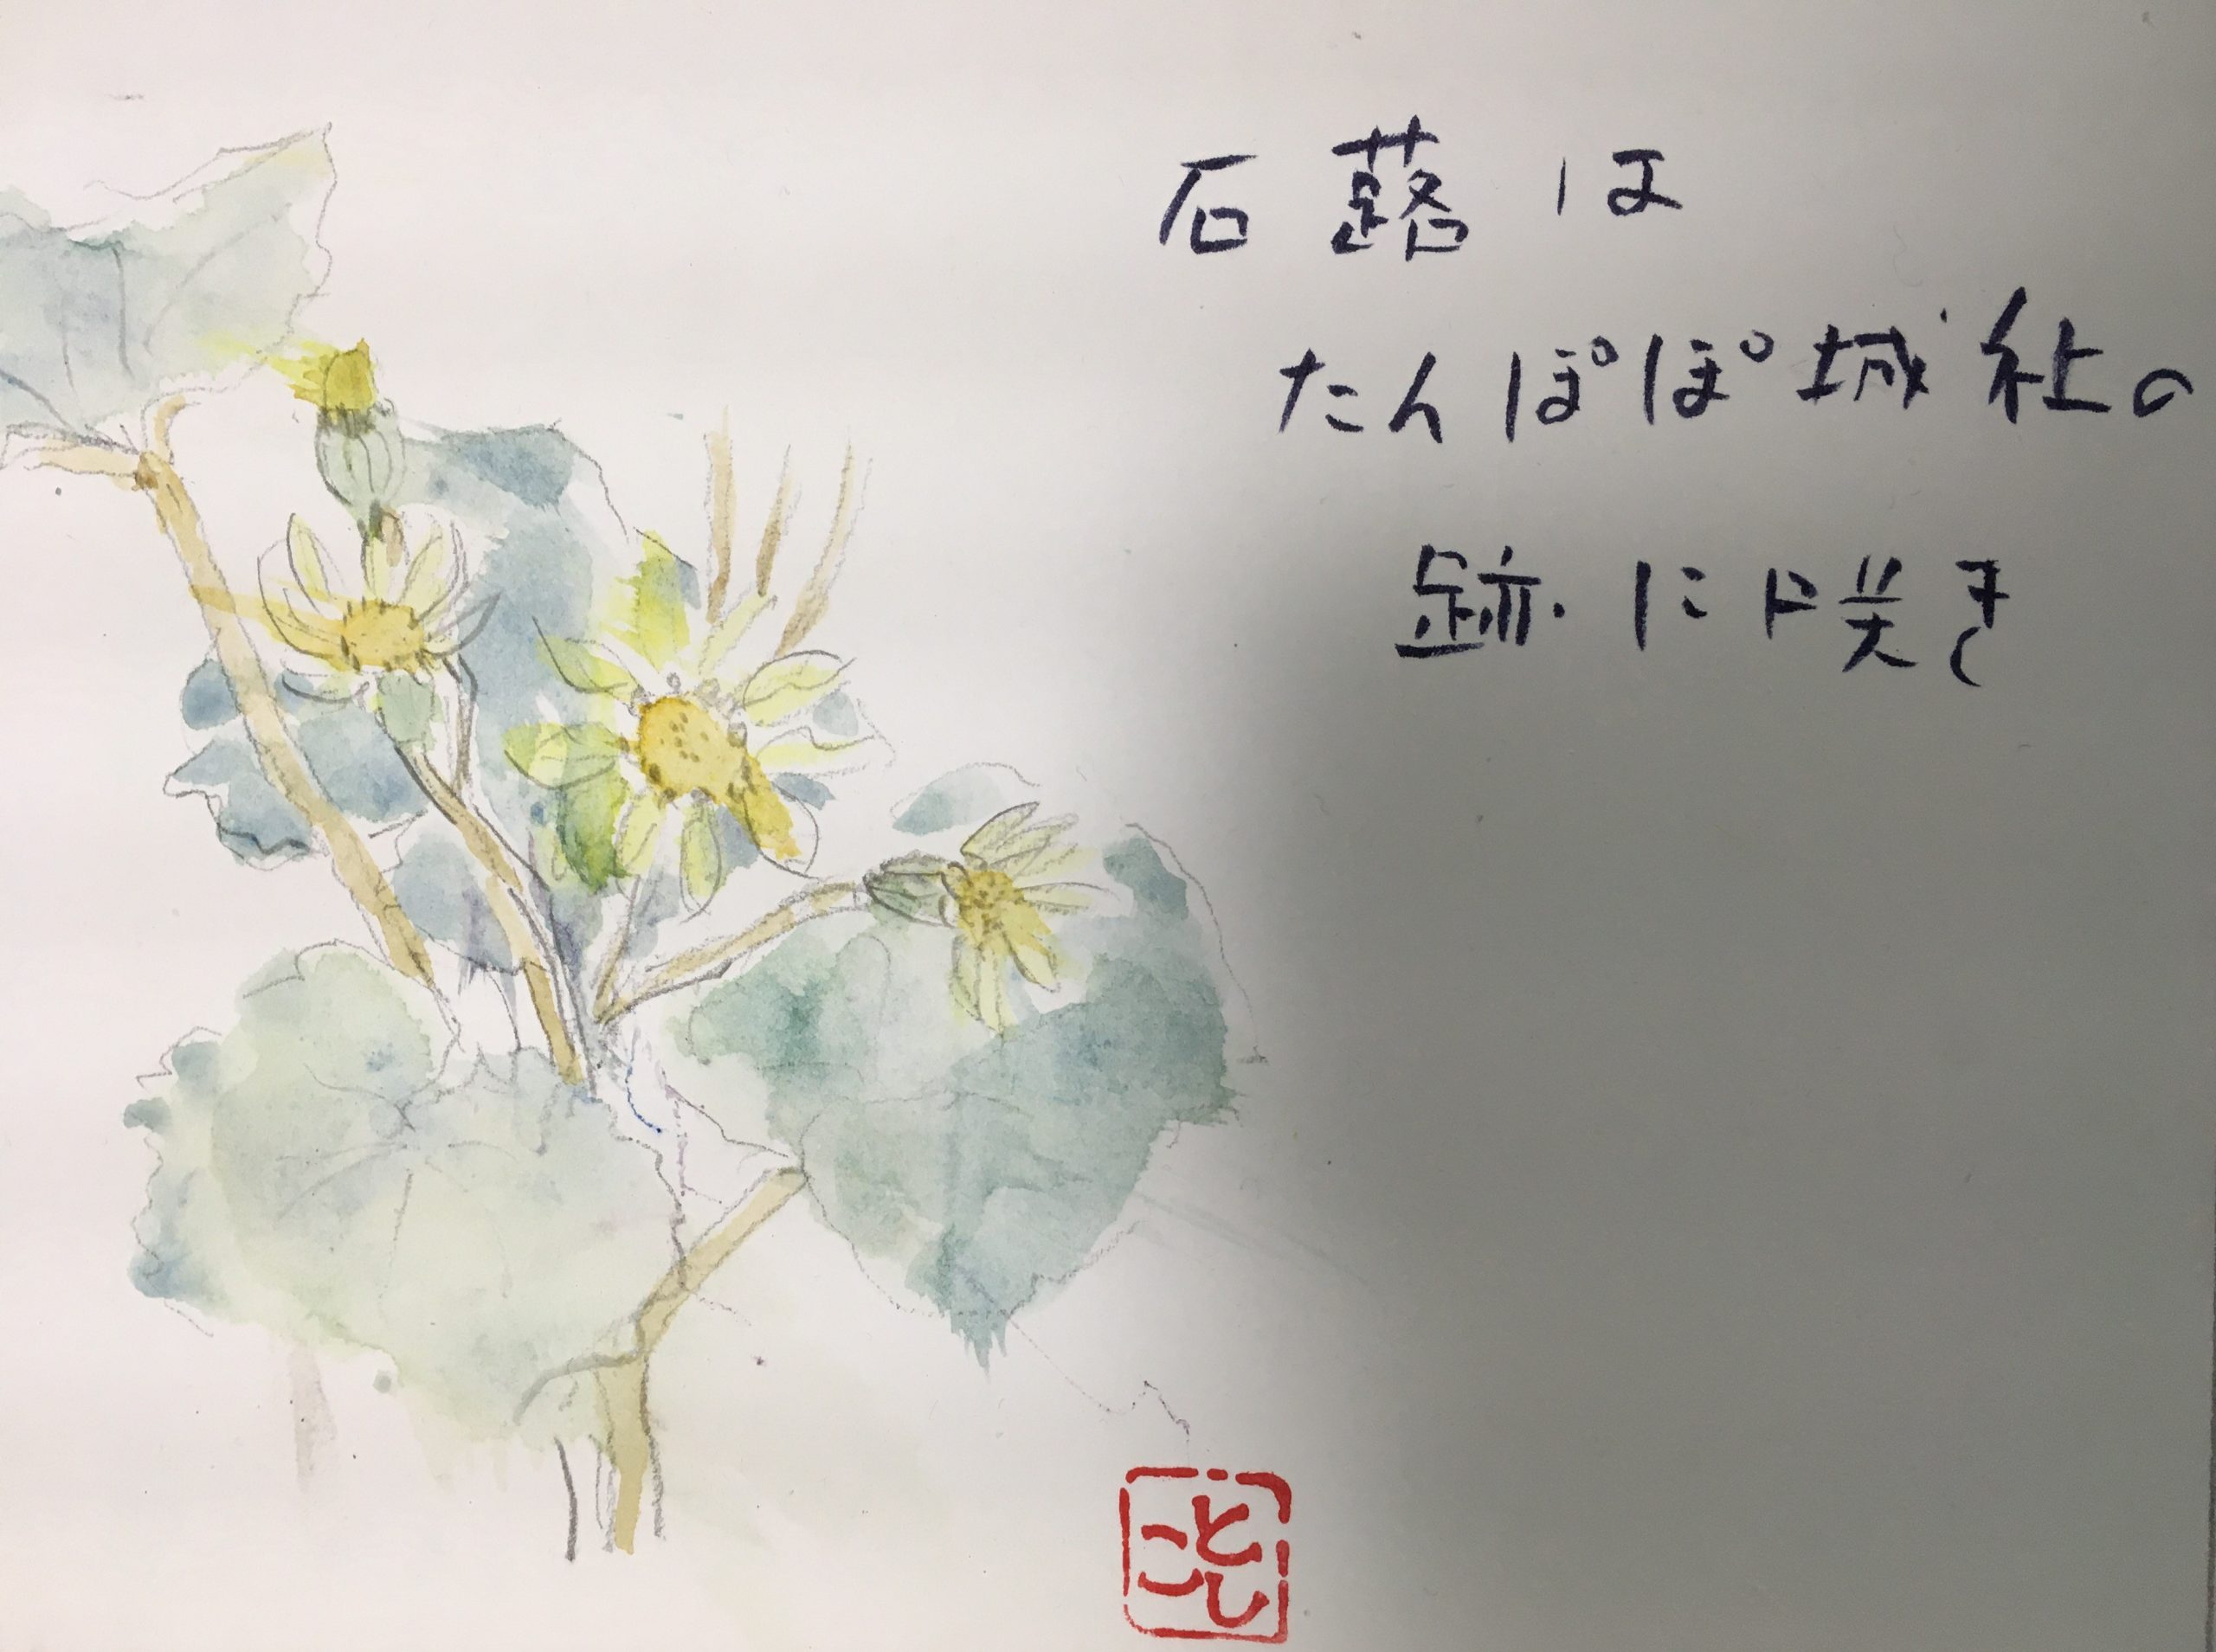 石蕗は
たんぽぽ城祉の
跡に咲き
としこ